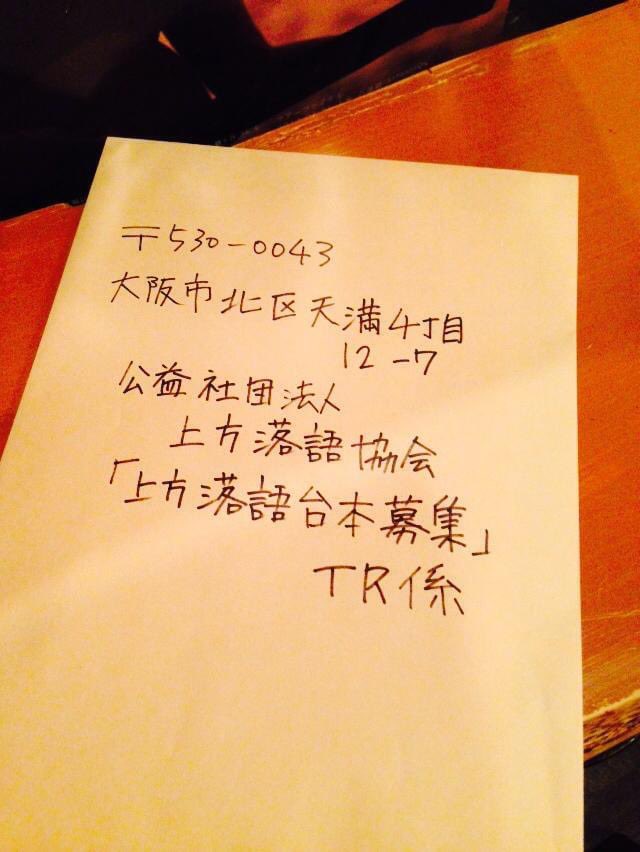 〒530-0043
大阪市北区天満4丁目
12-7
公益社団法人
上方落語協会
「上方落語台本募集」
TR係